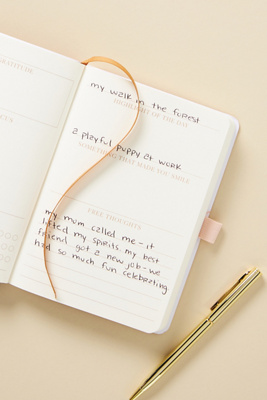 GRATITUDE
my walk in the forest
HIGHLIGHT OF THE DAY
a playful puppy at work
SOMETHING THAT MADE YOU SMILE
FREE THOUGHTS
my mum called me - it
lifted my spirits. my best
friend got a new job - we
had so much fun celebrating